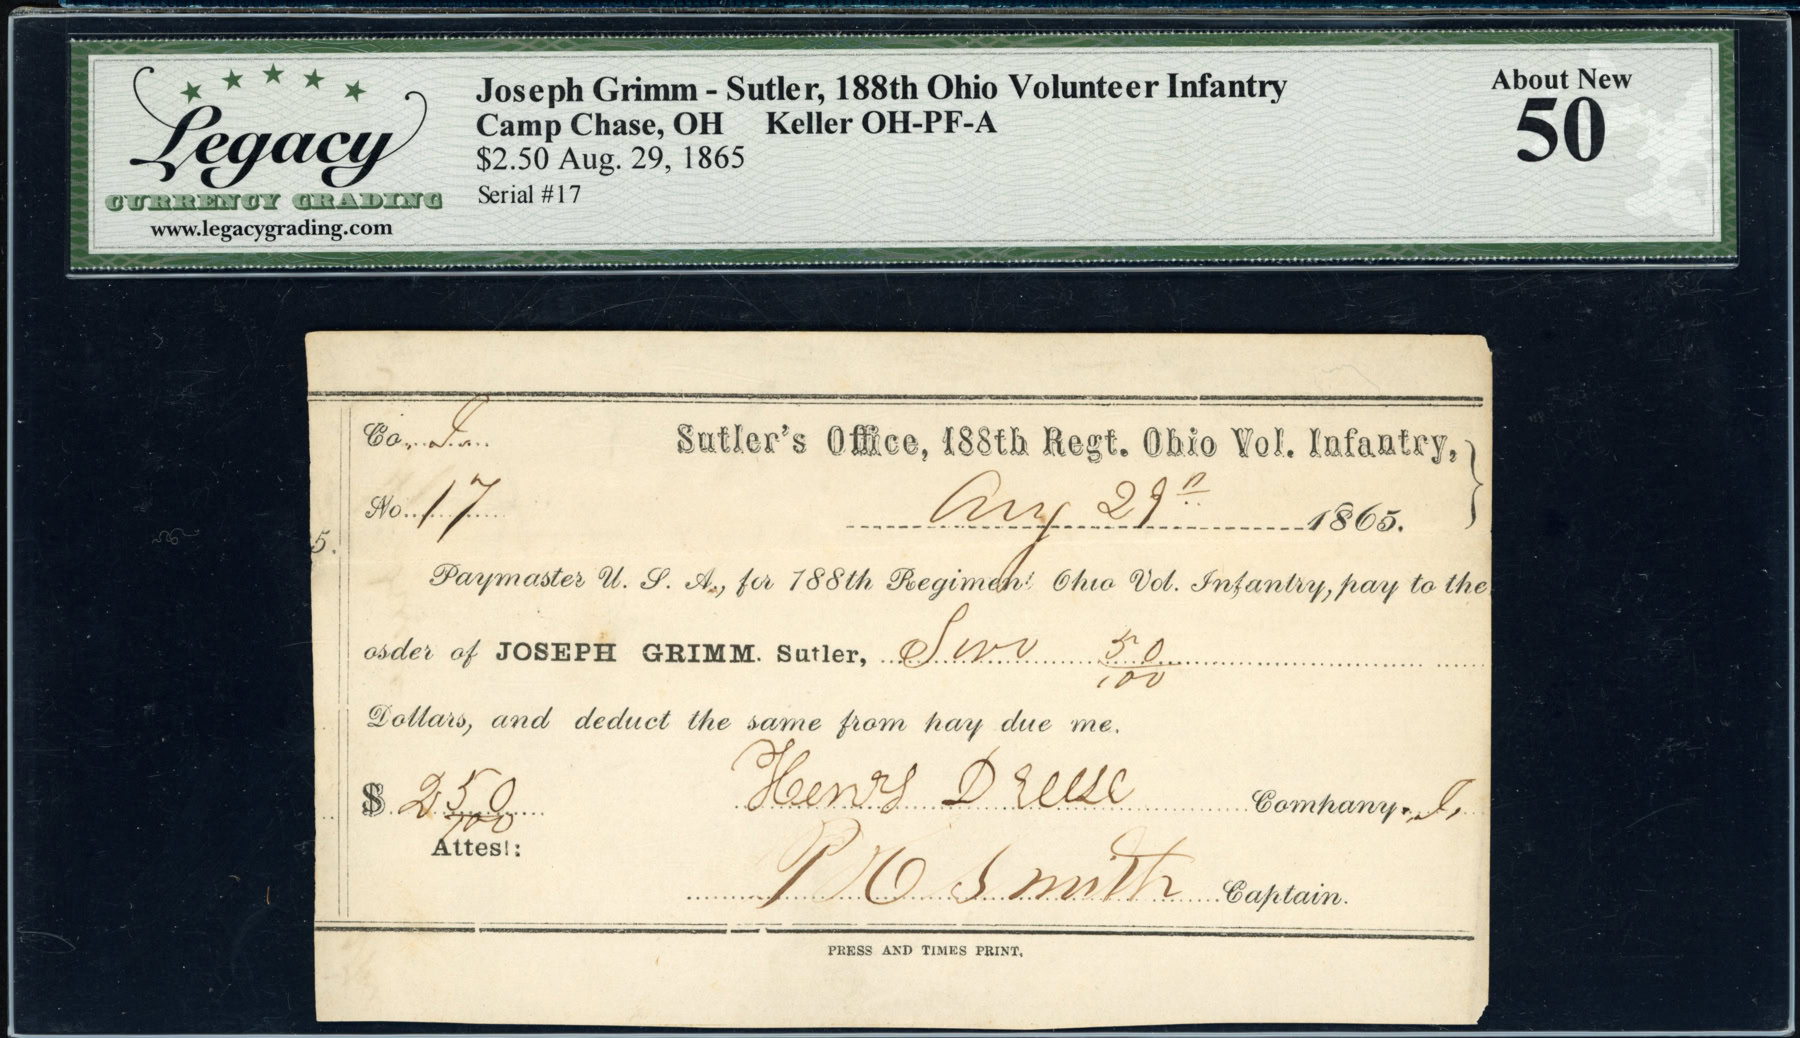 Legacy
CURRENCY GRADING
www.legacygrading.com
Joseph Grimm - Sutler, 188th Ohio Volunteer Infantry
Camp Chase, OH Keller OH-PF-A
$2.50 Aug. 29, 1865
Serial #17
About New
50
Co. I
Sutler's Office, 188th Regt. Ohio Vol. Infantry,
No. 17
Aug 29th 1865.
5.
Paymaster U. S. A., for 188th Regiment Ohio Vol. Infantry, pay to the
order of JOSEPH GRIMM. Sutler, Two 50/100
Dollars, and deduct the same from pay due me.
$ 2 50/100 Henry Company I,
Attest:
Smith Captain.
PRESS AND TIMES PRINT.